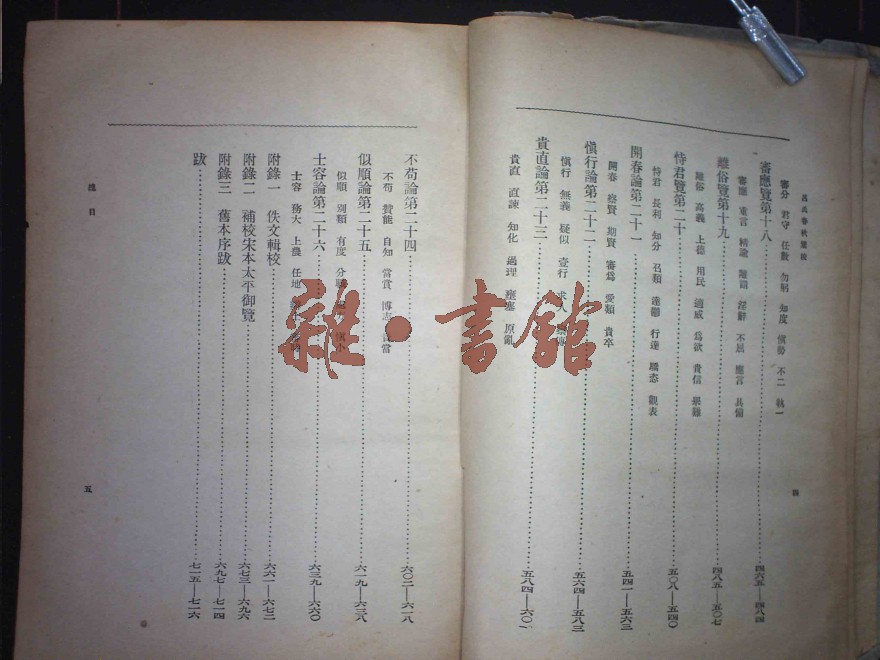 呂氏春秋彙校
審分 君守 任數 勿躬 知度 愼勢 不二 執一
審應覽第十八 四六五—四八四
審應 重言 精諭 離謂 淫辭 不屈 應言 具備
離俗覽第十九 四八五—五〇七
離俗 高義 上德 用民 適威 爲欲 貴信 舉難
恃君覽第二十 五〇八—五四〇
恃君 長利 知分 召類 達鬱 行達 驕恣 觀表
開春論第二十一 五四一—五六三
開春 察賢 期賢 審爲 愛類 貴卒
愼行論第二十二 五六四—五八三
愼行 無義 疑似 壹行 求人
貴直論第二十三 五八四—六〇一
貴直 直諫 知化 過理 壅塞 原亂
四
不苟論第二十四 六〇二—六一八
不苟 贊能 自知 當賞 博志 當
似順論第二十五 六一九—六三八
似順 別類 有度 分職
士容論第二十六 六三九—六六〇
士容 務大 上農 任地
附錄一 佚文輯校 六六一—六七二
附錄二 補校宋本太平御覽 六七三—六九六
附錄三 舊本序跋 六九七—七一四
跋 七一五—七一六
總目
五
雜·書館